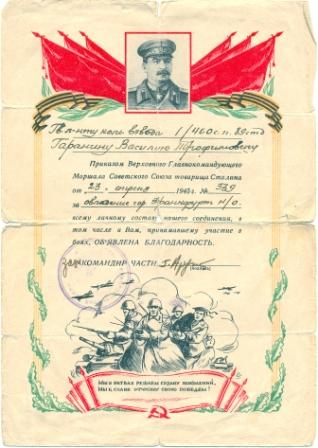 Гв. л-нту ком. взвода 1/460 с.п. 89 стд
Гаранину Василию Трофимовичу
Приказом Верховного Главнокомандующего
Маршала Советского Союза товарища Сталина
от 23 апреля 1945 г. № 339
за овладение гор Франкфурт н/О.
всему личному составу нашего соединения, в
том числе и Вам, принимавшему участие в
боях, ОБЪЯВЛЕНА БЛАГОДАРНОСТЬ.
КОМАНДИР ЧАСТИ
МЫ В БИТВАХ РЕШАЕМ СУДЬБУ ПОКОЛЕНИЙ,
МЫ К СЛАВЕ ОТЧИЗНУ СВОЮ ПОВЕДЕМ!